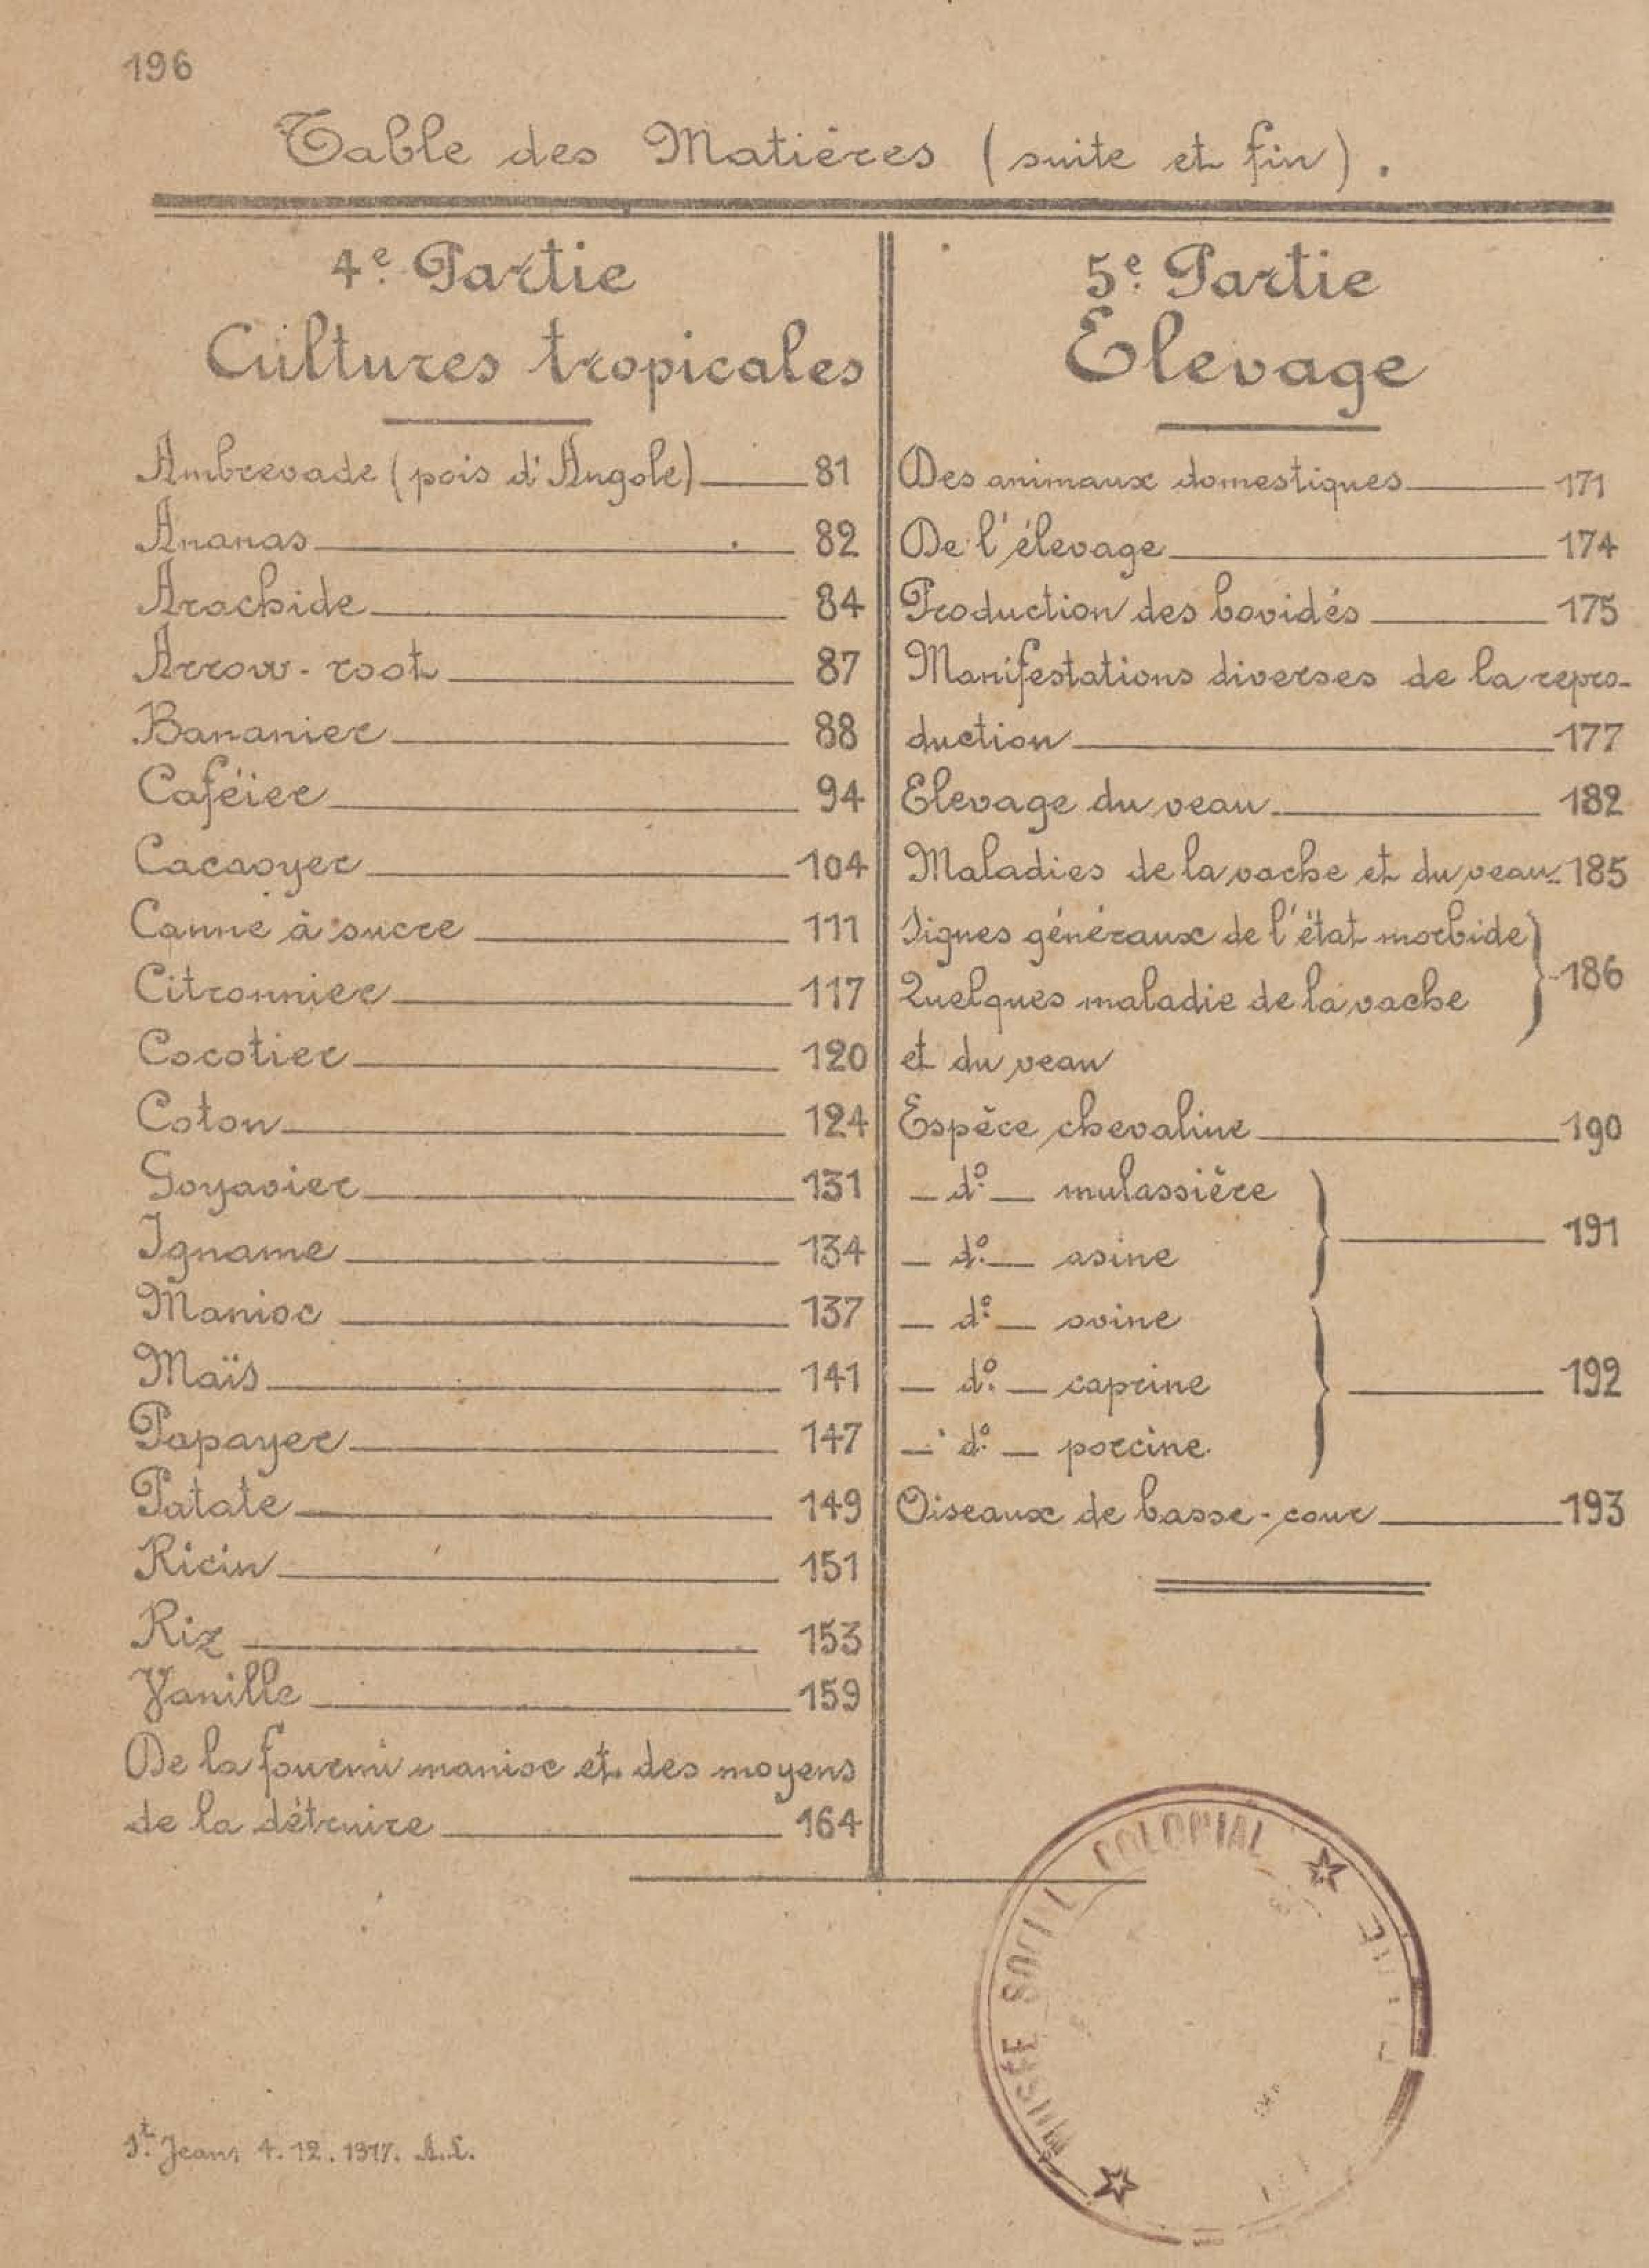 196
Table des Matières (suite et fin).
4e Partie
Cultures tropicales
Ambrevade (pois d'Angole) 81
Ananas 82
Arachide 84
Arrow-root 87
Bananier 88
Caféier 94
Cacaoyer 104
Canne à sucre 111
Citronnier 117
Cocotier 120
Coton 124
Goyavier 131
Igname 134
Manioc 137
Maïs 141
Papayer 147
Patate 149
Ricin 151
Riz 153
Vanille 159
De la fourmi manioc et des moyens
de la détruire 164
5e Partie
Elevage
Des animaux domestiques 171
De l'élevage 174
Production des bovidés 175
Manifestations diverses de la repro-
duction 177
Elevage du veau 182
Maladies de la vache et du veau 185
Signes généraux de l'état morbide
Quelques maladie de la vache } 186
et du veau
Espèce chevaline 190
- do - mulassière
- do - asine } 191
- do - ovine
- do - caprine } 192
- do - porcine
Oiseaux de basse-cour 193
MUSÉE SOCIAL COLONIAL
St Jean, 4.12.1917.